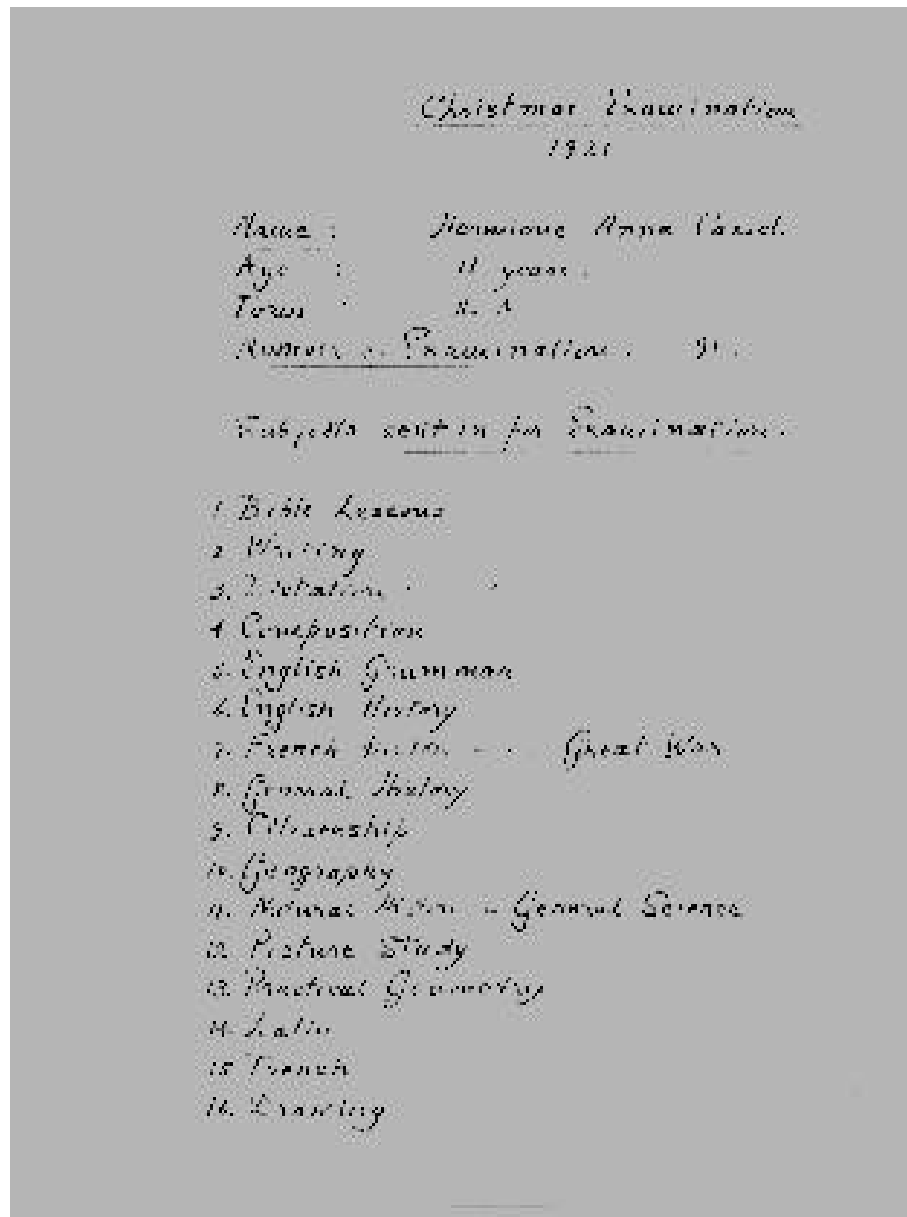 Christmas Examination
1921
Name : Hermione Anna
Age : 11 years.
Form : II. A
Examination. 91.
Subjects sent in for Examination.
1. Bible Lessons
2. Writing
3. Dictation
4. Composition
5. English Grammar
6. English History
7. French Great War
8. General History
9. Citizenship
10. Geography
11. Natural General Science
12. Picture Study
13. Practical Geometry
14. Latin
15. French
16. Drawing